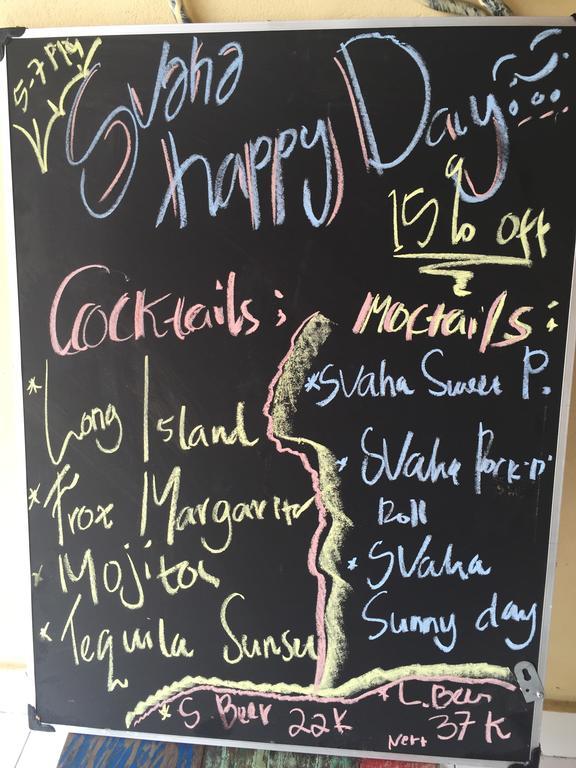 5-7 PM
Svaha
happy Day
15% off
Cocktails:
* Long Island
* Froz Margarita
* Mojitos
* Tequila
Moctails:
* Svaha Sweet P.
* Svaha
Roll
* Svaha
Sunny day
* S. Beer 22K
* L. Beer
Nett 37K